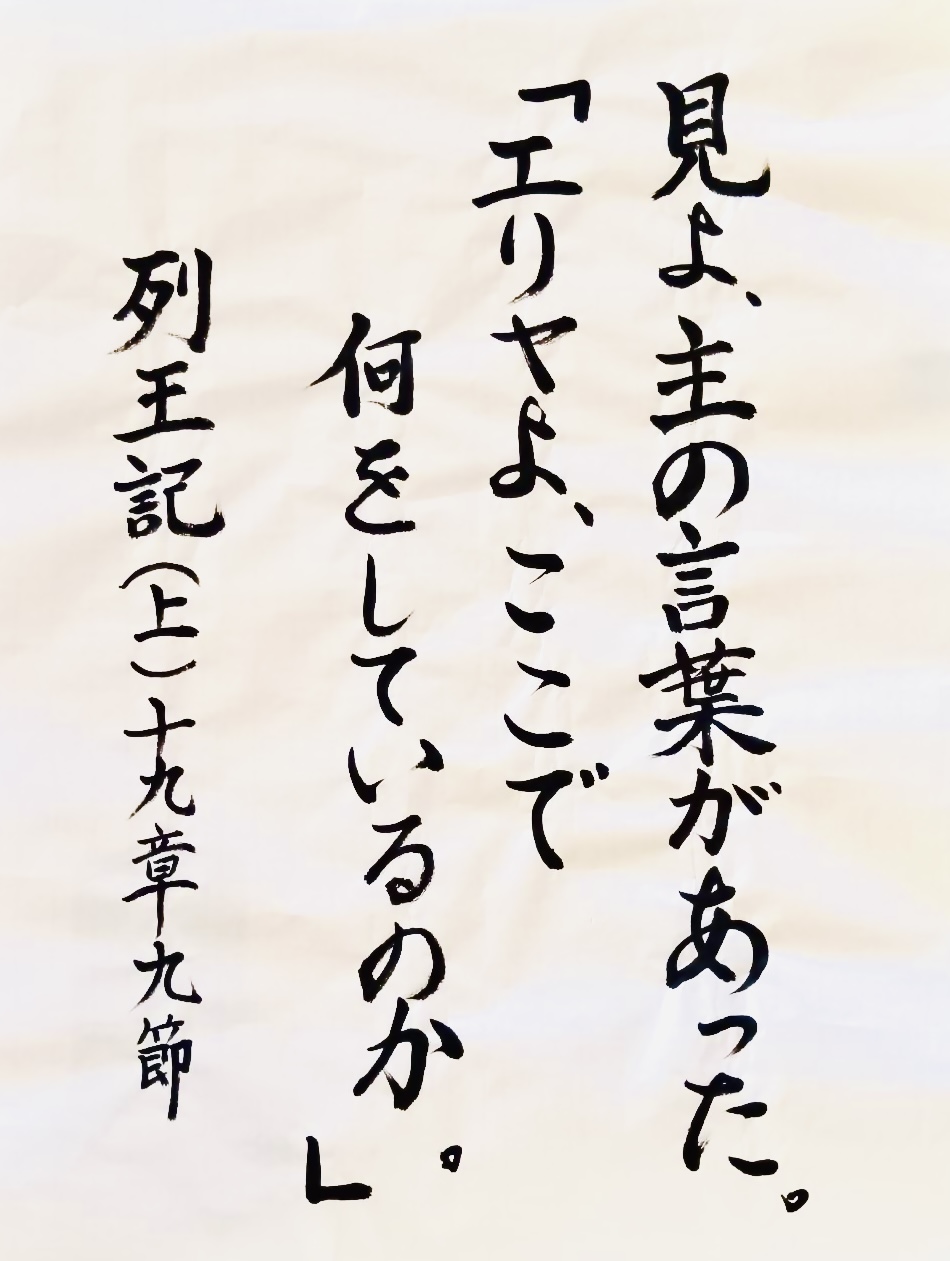 見よ、主の言葉があった。
「エリヤよ、ここで
何をしているのか。」
列王記(上)十九章九節